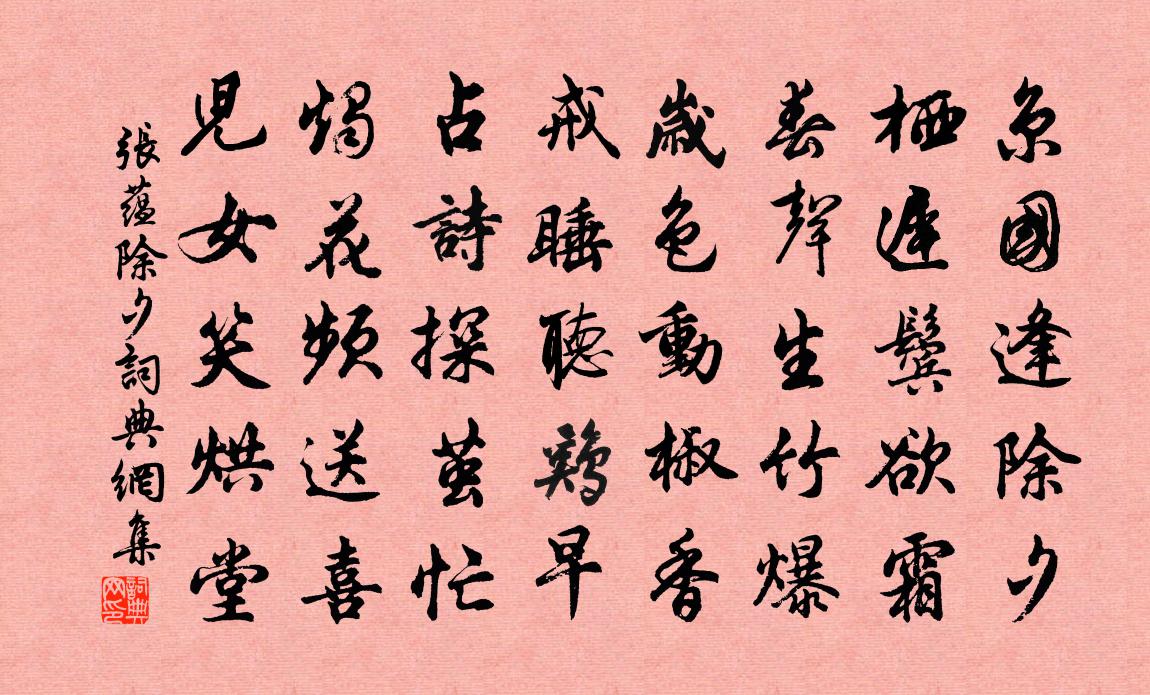 京國逢除夕
栖遲鬢欲霜
春聲生竹爆
歲色動椒香
戒睡聽鷄早
占詩探茧忙
燭花頻送喜
児女笑烘堂
張蘊除夕詞典網集
詞典网印